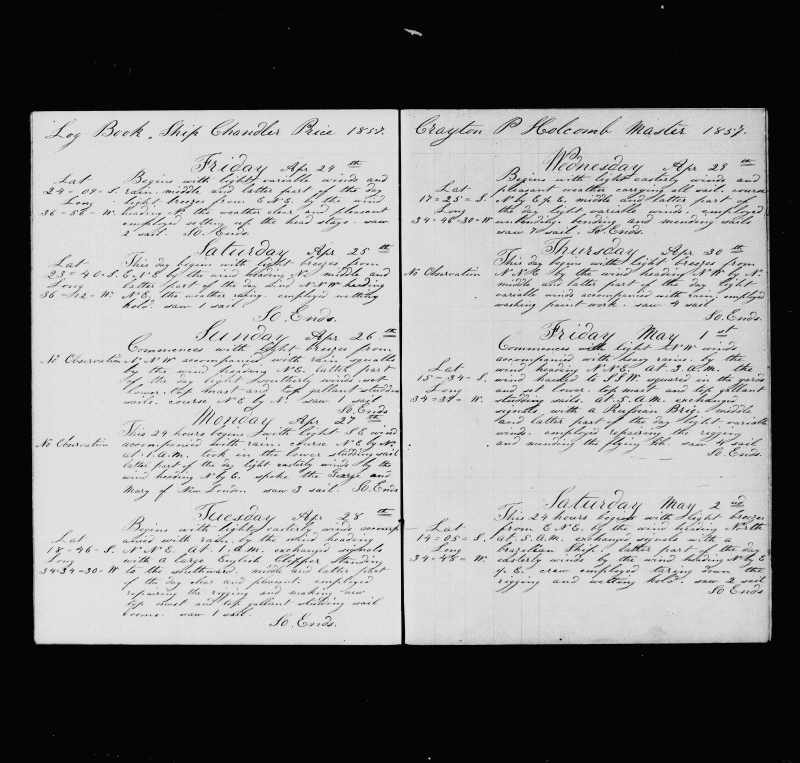 Log Book. Ship Chandler Price 1857.
Friday Apr 24th
Lat
24=09=S.
Long
36=58=W.
Begins with light variable winds and
rain. middle and latter part of the day
light breezes from E.N.E. by the wind
heading N. the weather clear and pleasant
employed setting up the head stays. saw
2 sail. So. Ends
Saturday Apr 25th
Lat
23=40=S.
Long
36=42=W.
This day begins with light breezes from
E.N.E by the wind heading N. middle and
latter part of the day wind N.N.W heading
N.E. the weather rainy. employed wetting
hold. saw 1 sail.
So. Ends.
Sunday Apr 26th
No Observation
Commences with light breezes from
N.N.W accompanied with rain squalls
by the wind heading N.E. latter part
of the day light southerly winds set
lower top mast and top gallant studding
sails. course N.E by N. saw 1 sail
So. Ends
Monday Apr 27th
No Observation
This 24 hours begins with light N.E wind
accompanied with rain. course N.E by N.
at 1.A.M. took in the lower studding sail
latter part of the day light easterly winds by the
wind heading N by E. spoke the George and
Mary of New London saw 3 sail. So. Ends
Tuesday Apr 28th
Lat
18=46=S.
Long
34=34=30=W
Begins with light easterly winds accomp
anied with rain. by the wind heading
N.N.E. At 1.A.M. exchanged signals
with a large English Clipper standing
to the southward. middle and latter part
of the day clear and pleasant. employed
repairing the rigging and making new
top mast and top gallant studding sail
booms. saw 1 sail.
So. Ends.
Crayton P Holcomb Master 1857.
Wednesday Apr 29th
Lat
17=25=S.
Long
34=48=30=W
Begins with light easterly winds and
pleasant weather carrying all sail. course
N by E ½ E. middle and latter part of
the day light variable winds. employed
unbending bending and mending sails
saw 10 sail. So. Ends
Thursday Apr 30th
No Observation
This day begins with light breezes from
N.N.E by the wind heading N.W by N.
middle and latter part of the day light
variable winds accompanied with rain. employed
washing paint work. saw 4 sail
So. Ends.
Friday May 1st
Lat
15=34=S.
Long
34=39=W.
Commences with light N.W winds
accompanied with heavy rains. by the
wind heading N.N.E. At 3.A.M. the
wind hauled to S.S.W. squared in the yards
and set lower top mast and top gallant
studding sails. at 5.A.M. exchanged
signals with a Russian Brig. middle
and latter part of the day light variable
winds. employed repairing the rigging
and mending the flying jib. saw 4 sail
So. Ends.
Saturday May 2nd
Lat
14=05=S.
Long
34=45=W.
This 24 hours begins with light breezes
from E.N.E. by the wind heading North
at 5.A.M. exchanged signals with a
brazilian Ship. latter part of the day
easterly winds by the wind heading N by E
½ E. crew employed taring down the
rigging and wetting hold. saw 2 sail
So Ends